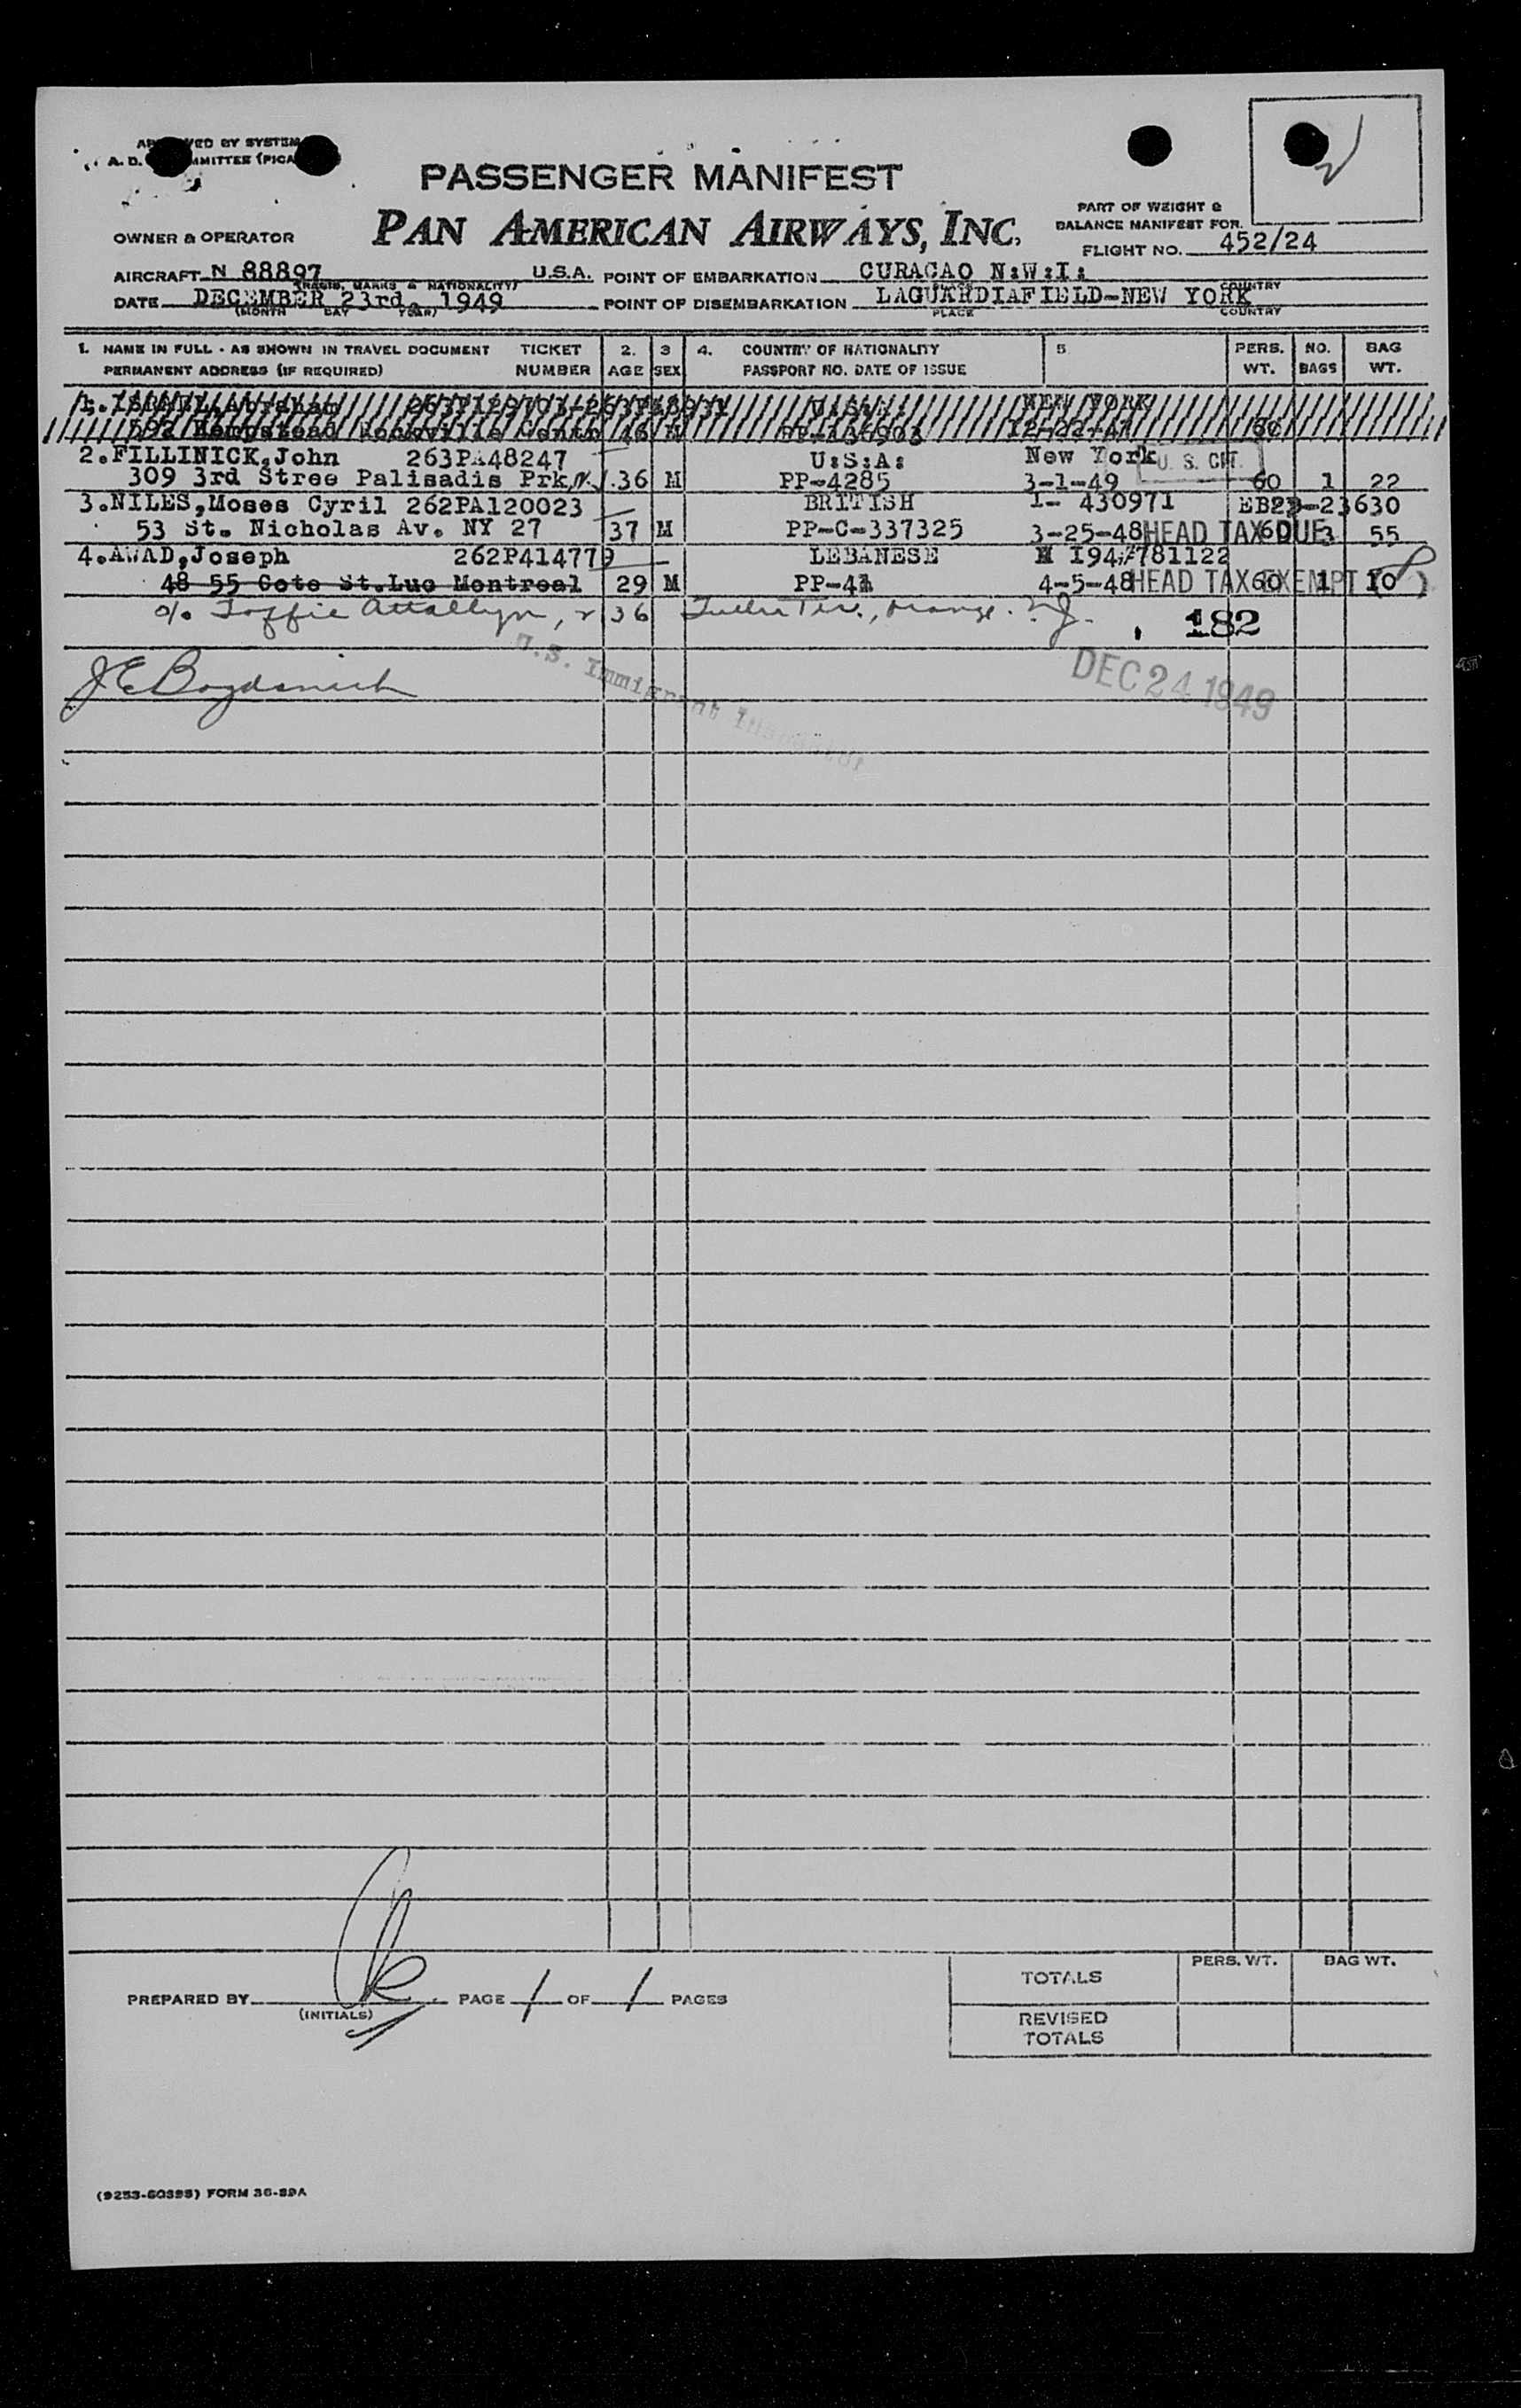 PASSENGER MANIFEST
PAN AMERICAN AIRWAYS, INC.
PART OF WEIGHT &
BALANCE MANIFEST FOR
OWNER & OPERATOR
FLIGHT NO. 452/24
AIRCRAFT N 88897 U.S.A. POINT OF EMBARKATION CURACAO N:W:I:
(REGIS. MARKS & NATIONALITY) COUNTRY
DATE DECEMBER 23rd. 1949 POINT OF DISEMBARKATION LAGUARDIAFIELD-NEW YORK
(MONTH DAY YEAR) PLACE COUNTRY
1. NAME IN FULL - AS SHOWN IN TRAVEL DOCUMENT TICKET 2. 3 4. COUNTRY OF NATIONALITY 5 PERS. NO. BAG
PERMANENT ADDRESS (IF REQUIRED) NUMBER AGE SEX PASSPORT NO. DATE OF ISSUE WT. BAGS WT.
1. NEW YORK
592 Hempstead Rockville 46 M
2.FILLINICK,John 263PA48247 U:S:A: New York U. S. CIT.
309 3rd Stree Palisadis Prk, N.J. 36 M PP-4285 3-1-49 60 1 22
3.NILES,Moses Cyril 262PA120023 BRITISH I- 430971 EB23-23630
53 St. Nicholas Av. NY 27 37 M PP-C-337325 3-25-48 HEAD TAX DUE 60 3 55
4.AWAD,Joseph 262P414779 LEBANESE I94#781122
48 55 Cote St.Luc Montreal 29 M PP-41 4-5-48 HEAD TAX EXEMPT ( ) 60 1 10
c/o Toffie 36 Orange. N.J.
182
J E Bogdanich
U.S. Immigrant Inspector
DEC 24 1949
TOTALS PERS. WT. BAG WT.
PREPARED BY PAGE 1 OF 1 PAGES
(INITIALS)
REVISED
TOTALS
(9253-60395) FORM 36-89A